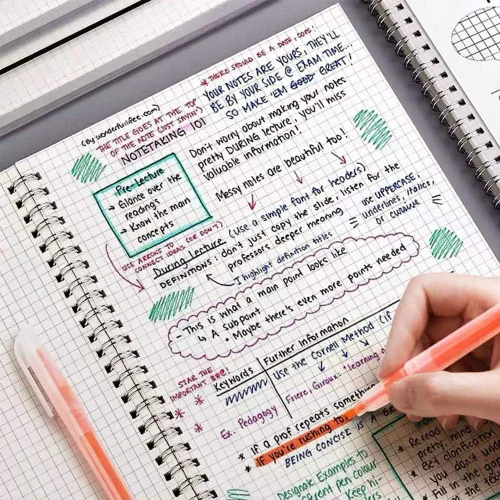 * THERE SHOULD BE A DATE, OOPS!
(By wonderfulifee.com)
THE TITLE GOES AT THE TOP
OF THE NOTE (JUST SAYIN')
NOTETAKING 101
YOUR NOTES ARE YOURS, THEY'LL
BE BY YOUR SIDE @ EXAM TIME...
SO MAKE 'EM GOOD GREAT!
Don't worry about making your notes
pretty DURING lecture, you'll miss
valuable information!
Messy notes are beautiful too!
Pre-Lecture
→ Glance over the
readings
→ Know the main
concepts
USE ARROWS TO
CONNECT IDEAS (OR DON'T)
During Lecture (Use a simple font for headers)
DEFINITIONS: don't just copy the slide, listen for the
professors deeper meaning
I highlight definition titles
use UPPERCASE,
underlines, italics,
or cursive
- This is what a main point looks like
↳ A subpoint
• Maybe there's even more points needed
STAR THE
IMPORTANT
Keywords
Further Information
Use the Cornell Method (if
Ex. Pedagogy
Friere, Giroux: "learning t
* If a prof repeats somethin
* IF you're rushing to
BEING CONCISE IS A
Designate Examples to
rent pen colour
keep hi-
• Reread
pretty, mind
• Get clarificat
you don't u
• Fill in the g